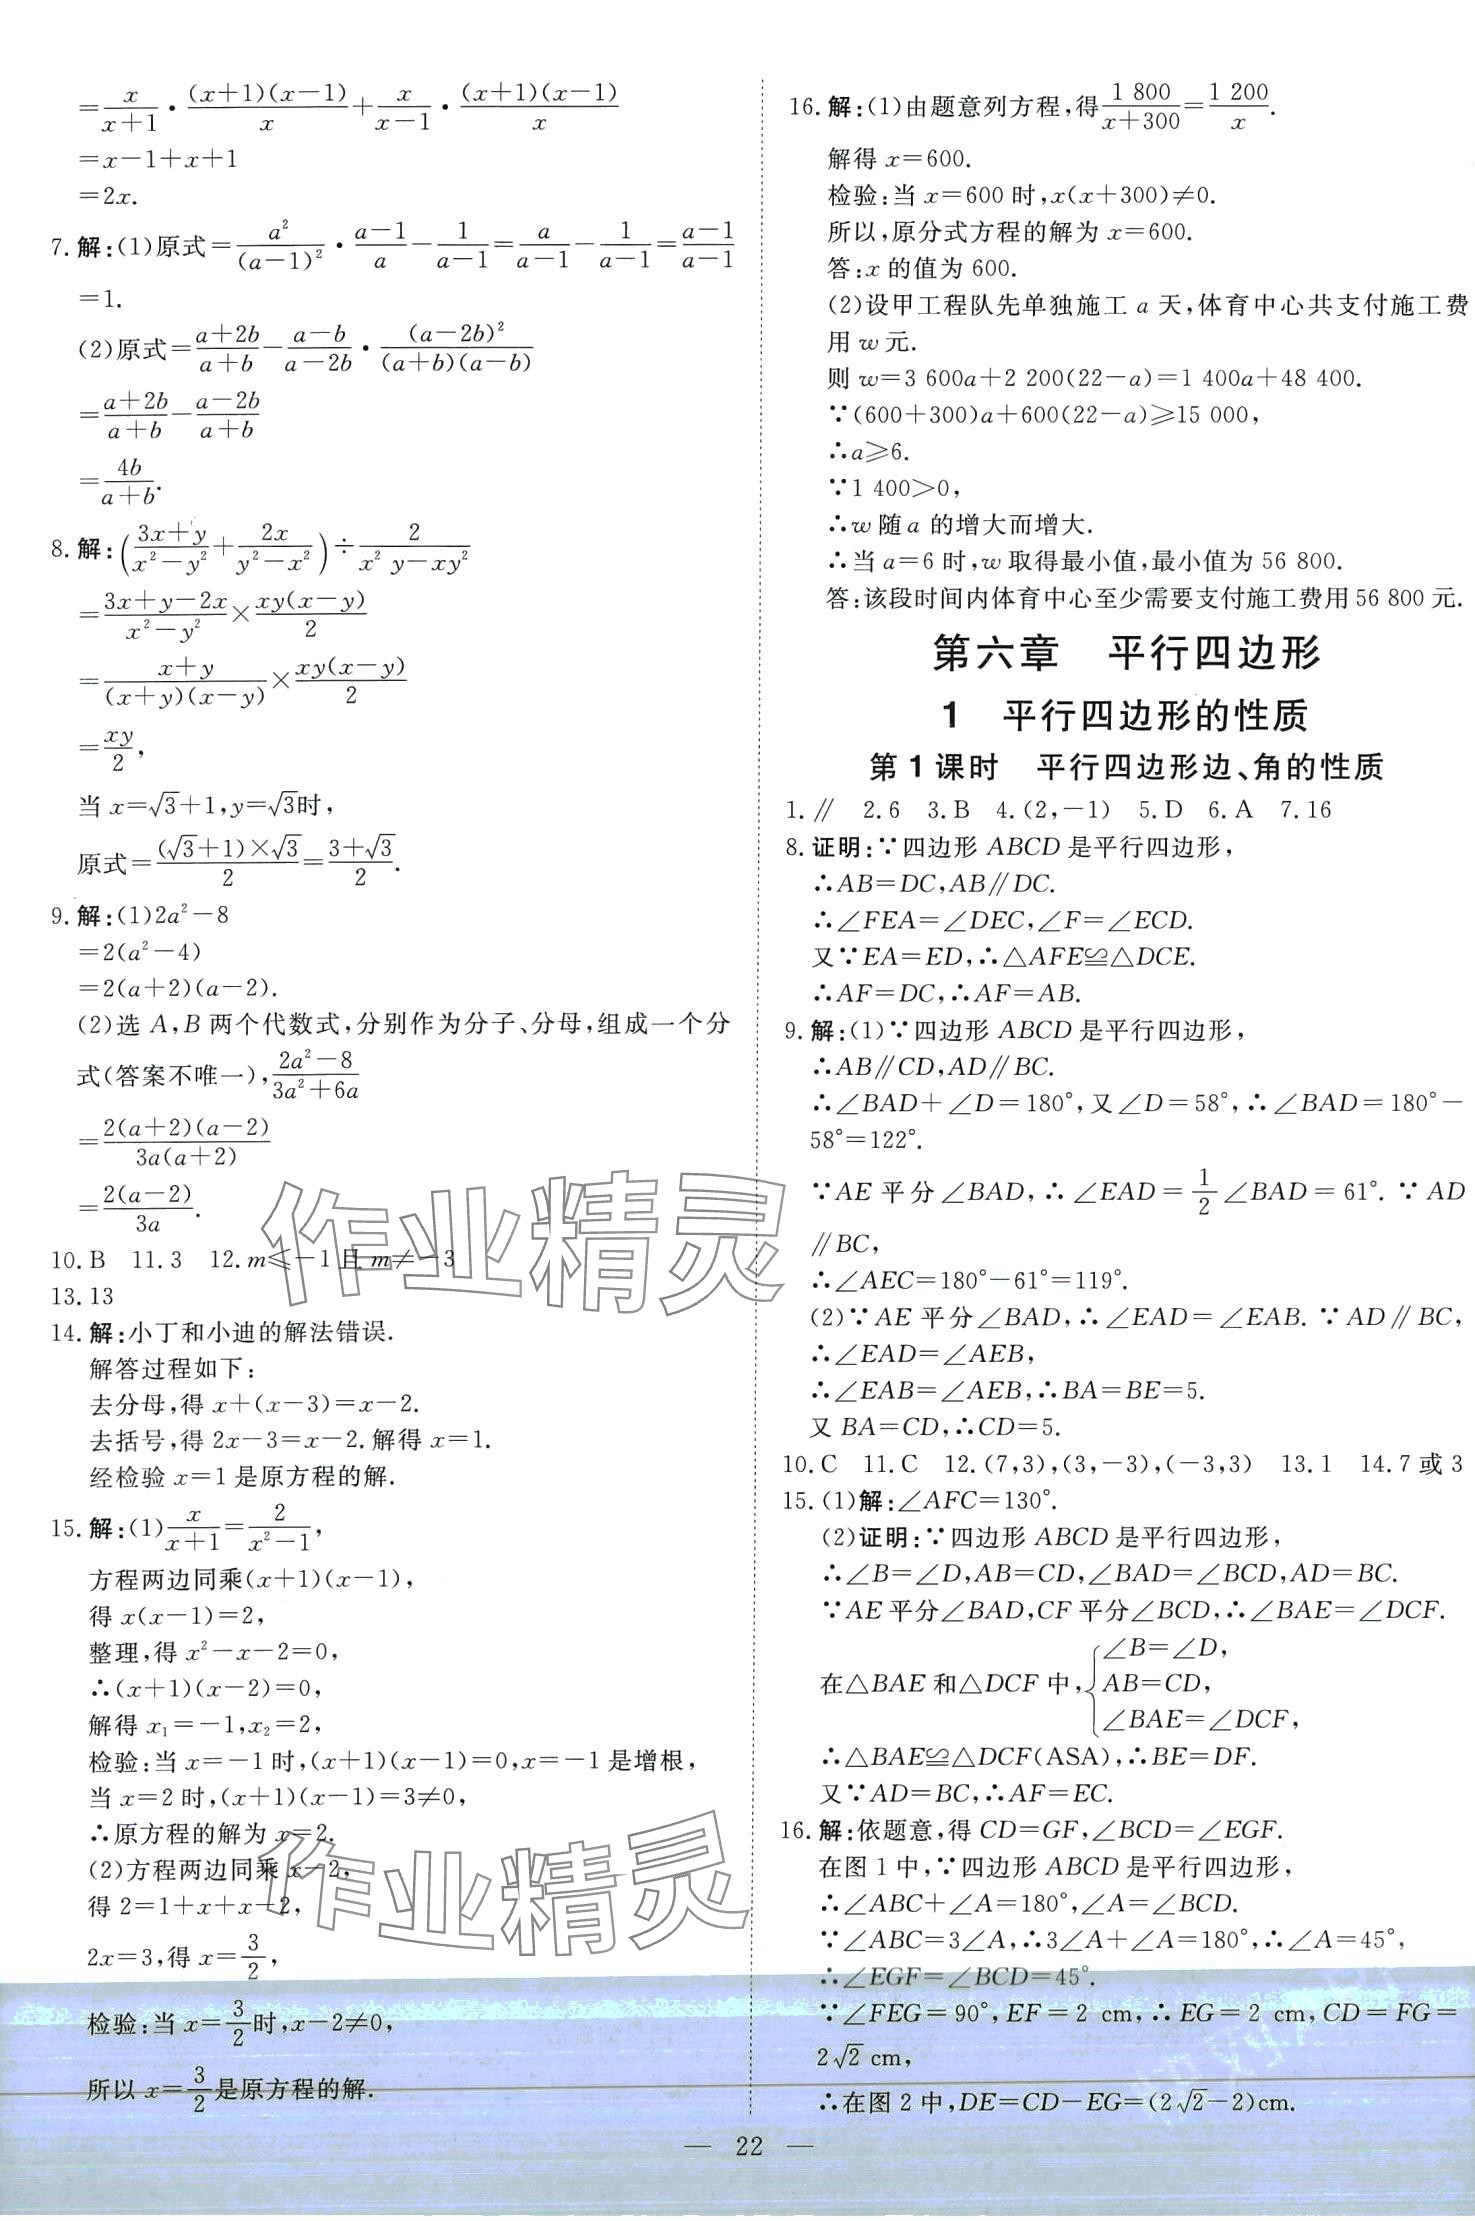 =x/(x+1)·(x+1)(x−1)/x+x/(x−1)·(x+1)(x−1)/x
=x−1+x+1
=2x.
7.解:(1)原式=a²/(a−1)²·(a−1)/a−1/(a−1)=a/(a−1)−1/(a−1)=(a−1)/(a−1)
=1.
(2)原式=(a+2b)/(a+b)−(a−b)/(a−2b)·(a−2b)²/(a+b)(a−b)
=(a+2b)/(a+b)−(a−2b)/(a+b)
=4b/(a+b).
8.解:((3x+y)/(x²−y²)+2x/(y²−x²))÷2/(x²y−xy²)
=(3x+y−2x)/(x²−y²)×xy(x−y)/2
=(x+y)/(x+y)(x−y)×xy(x−y)/2
=xy/2,
当 x=√3+1,y=√3时,
原式=(√3+1)×√3/2=(3+√3)/2.
9.解:(1)2a²−8
=2(a²−4)
=2(a+2)(a−2).
(2)选 A,B 两个代数式,分别作为分子、分母,组成一个分
式(答案不唯一),(2a²−8)/(3a²+6a)
=2(a+2)(a−2)/3a(a+2)
=2(a−2)/3a.
10.B 11.3 12.m≤−1 且 m≠−3
13.13
14.解:小丁和小迪的解法错误.
解答过程如下:
去分母,得 x+(x−3)=x−2.
去括号,得 2x−3=x−2.解得 x=1.
经检验 x=1 是原方程的解.
15.解:(1)x/(x+1)=2/(x²−1),
方程两边同乘(x+1)(x−1),
得 x(x−1)=2,
整理,得 x²−x−2=0,
∴(x+1)(x−2)=0,
解得 x₁=−1,x₂=2,
检验:当 x=−1 时,(x+1)(x−1)=0,x=−1 是增根,
当 x=2 时,(x+1)(x−1)=3≠0,
∴原方程的解为 x=2.
(2)方程两边同乘 x−2,
得 2=1+x+x−2,
2x=3,得 x=3/2,
检验:当 x=3/2时,x−2≠0,
所以 x=3/2是原方程的解.
16.解:(1)由题意列方程,得1 800/(x+300)=1 200/x.
解得 x=600.
检验:当 x=600 时,x(x+300)≠0.
所以,原分式方程的解为 x=600.
答:x 的值为 600.
(2)设甲工程队先单独施工 a 天,体育中心共支付施工费
用 w 元.
则 w=3 600a+2 200(22−a)=1 400a+48 400.
∵(600+300)a+600(22−a)≥15 000,
∴a≥6.
∵1 400>0,
∴w 随 a 的增大而增大.
∴当 a=6 时,w 取得最小值,最小值为 56 800.
答:该段时间内体育中心至少需要支付施工费用 56 800 元.
第六章 平行四边形
1 平行四边形的性质
第 1 课时 平行四边形边、角的性质
1.∥ 2.6 3.B 4.(2,−1) 5.D 6.A 7.16
8.证明:∵四边形 ABCD 是平行四边形,
∴AB=DC,AB∥DC.
∴∠FEA=∠DEC,∠F=∠ECD.
又∵EA=ED,∴△AFE≌△DCE.
∴AF=DC,∴AF=AB.
9.解:(1)∵四边形 ABCD 是平行四边形,
∴AB∥CD,AD∥BC.
∴∠BAD+∠D=180°,又∠D=58°,∴∠BAD=180°−
58°=122°.
∵AE 平分∠BAD,∴∠EAD=1/2∠BAD=61°.∵AD
∥BC,
∴∠AEC=180°−61°=119°.
(2)∵AE 平分∠BAD,∴∠EAD=∠EAB.∵AD∥BC,
∴∠EAD=∠AEB,
∴∠EAB=∠AEB,∴BA=BE=5.
又 BA=CD,∴CD=5.
10.C 11.C 12.(7,3),(3,−3),(−3,3) 13.1 14.7 或 3
15.(1)解:∠AFC=130°.
(2)证明:∵四边形 ABCD 是平行四边形,
∴∠B=∠D,AB=CD,∠BAD=∠BCD,AD=BC.
∵AE 平分∠BAD,CF 平分∠BCD,∴∠BAE=∠DCF.
∠B=∠D,
在△BAE 和△DCF 中,{AB=CD,
∠BAE=∠DCF,
∴△BAE≌△DCF(ASA),∴BE=DF.
又∵AD=BC,∴AF=EC.
16.解:依题意,得 CD=GF,∠BCD=∠EGF.
在图 1 中,∵四边形 ABCD 是平行四边形,
∴∠ABC+∠A=180°,∠A=∠BCD.
∵∠ABC=3∠A,∴3∠A+∠A=180°,∴∠A=45°,
∴∠EGF=∠BCD=45°.
∵∠FEG=90°,EF=2 cm,∴EG=2 cm,CD=FG=
2√2 cm,
∴在图 2 中,DE=CD−EG=(2√2−2)cm.
— 22 —
作业精灵
作业精灵